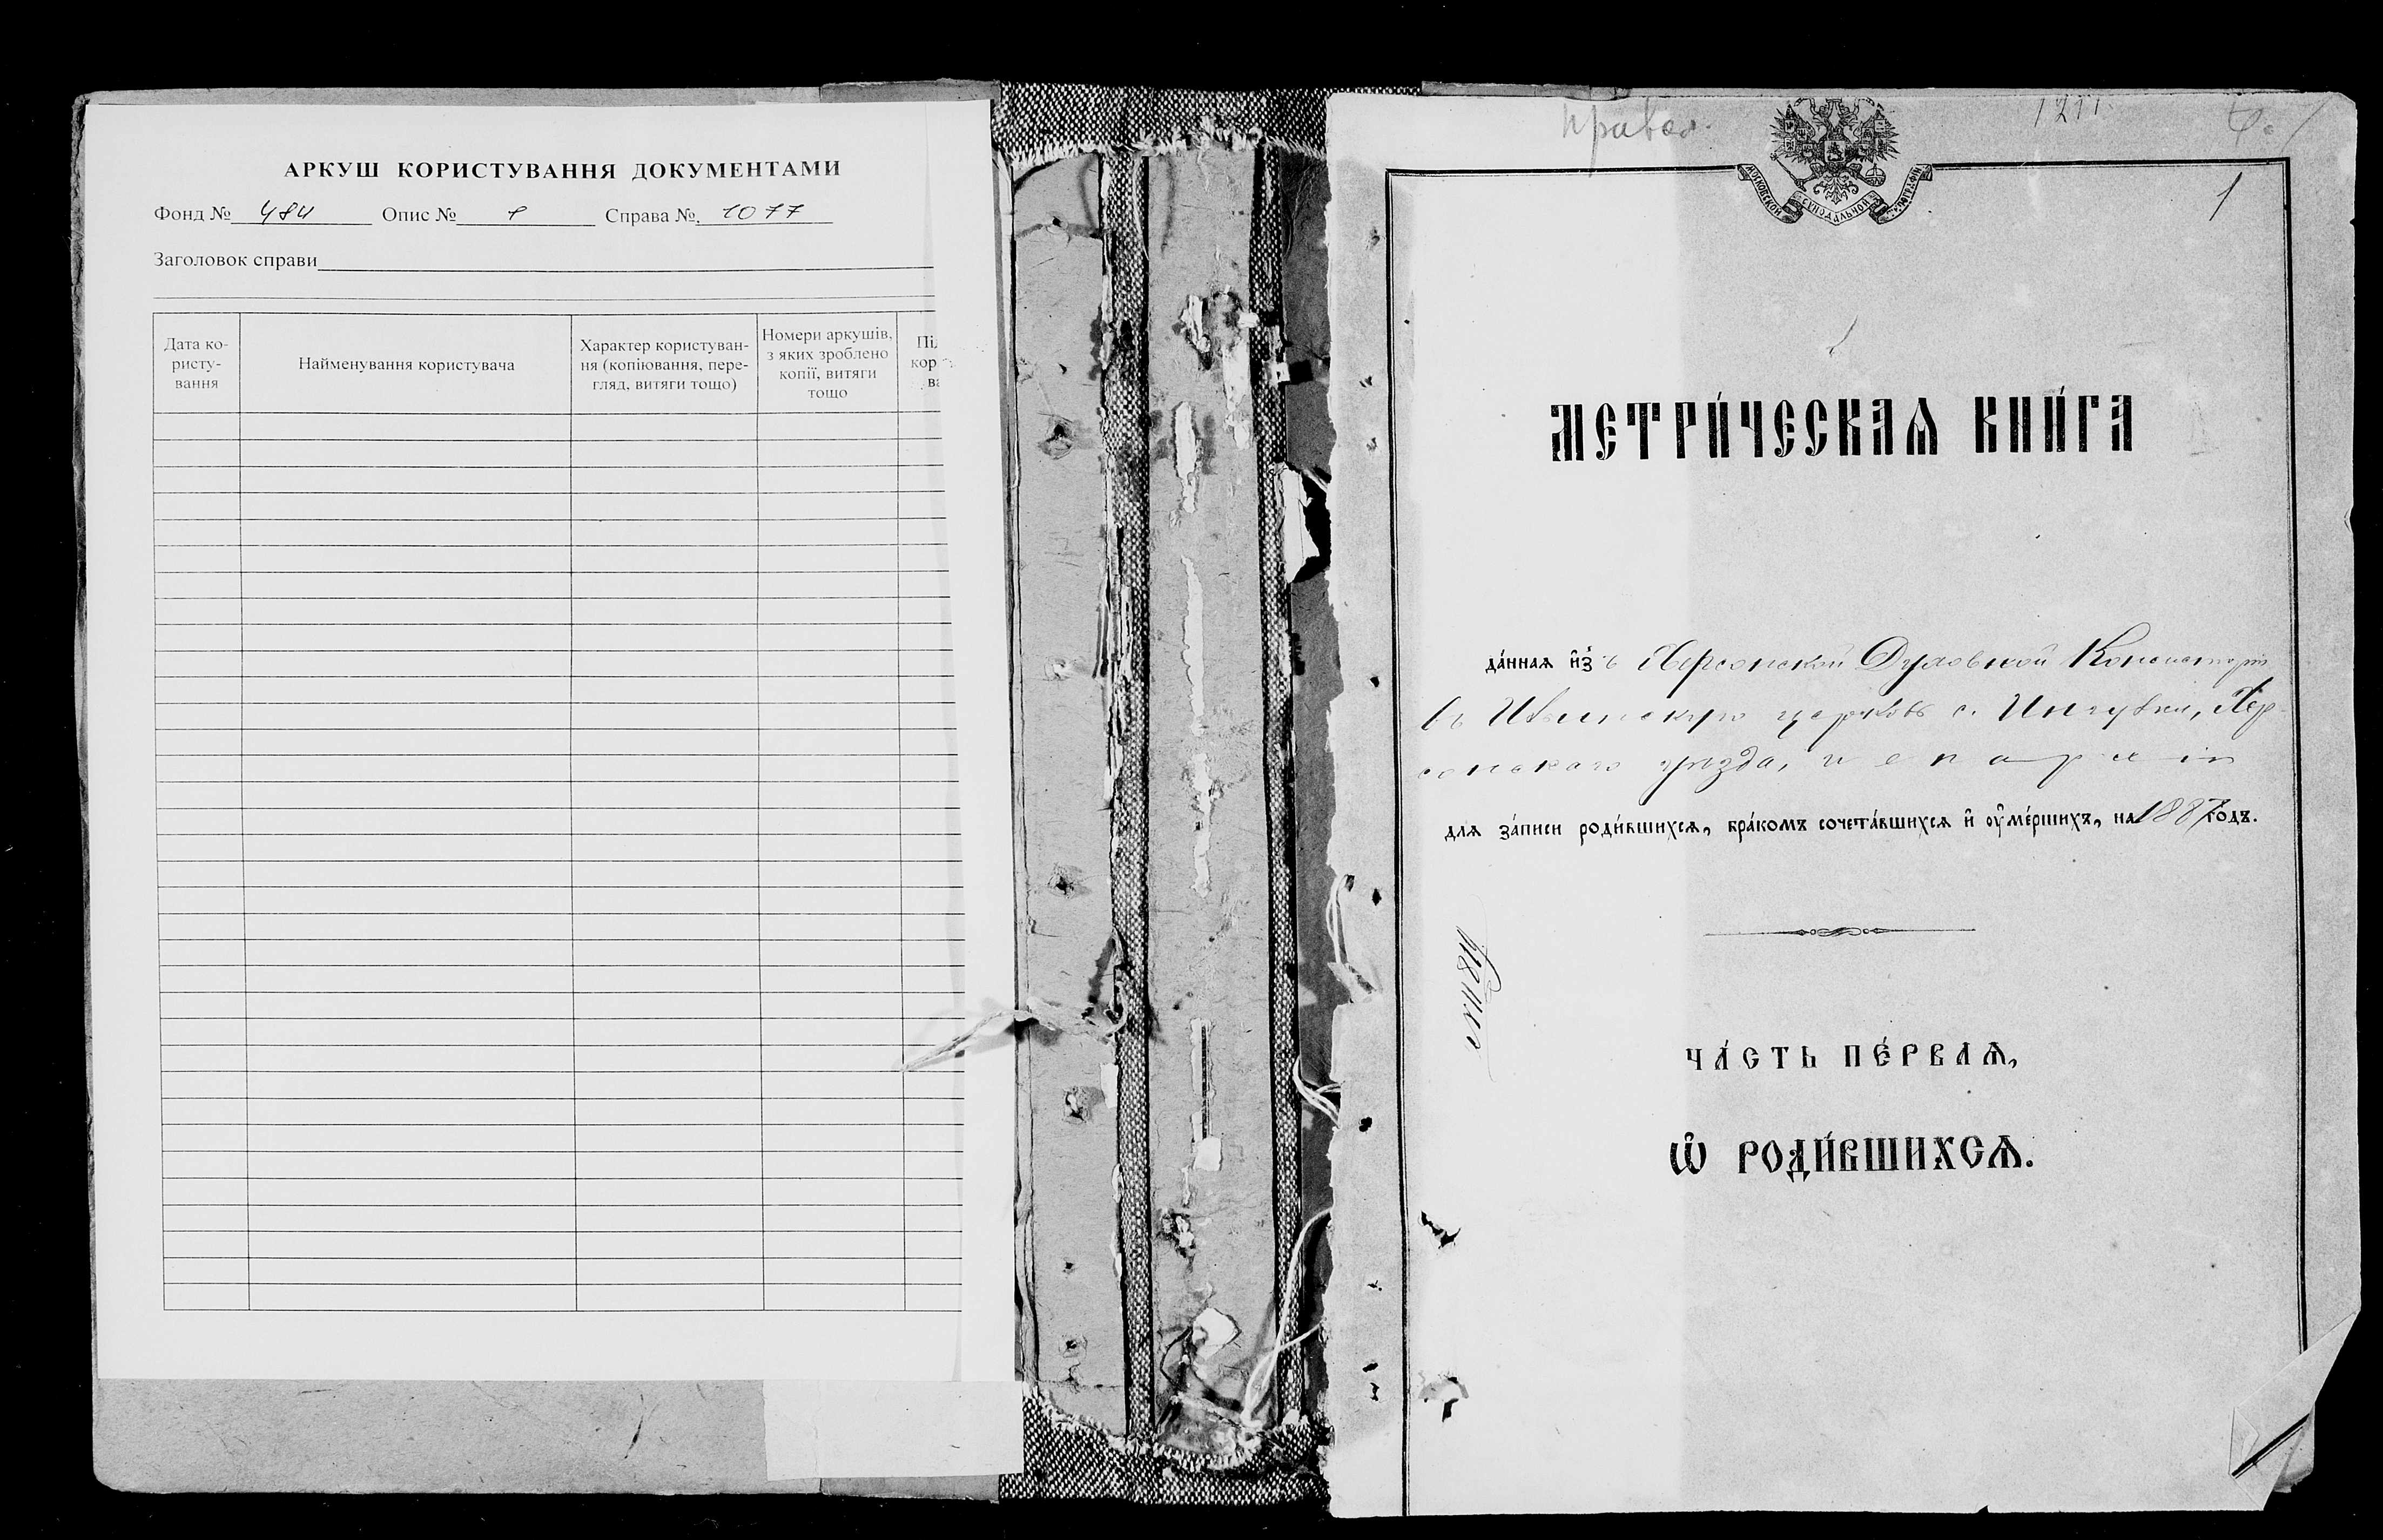 АРКУШ КОРИСТУВАННЯ ДОКУМЕНТАМИ
Фонд № 484 Опис № Справа №. 1077
Заголовок справи
Дата ко-
ристу-
вання
Найменування користувача
Характер користуван-
ня (копіювання, пере-
гляд, витяги тощо)
Номери аркушів,
з яких зроблено
копії, витяги
тощо
Під
кор
ва
1211.
1
МОСКОВСКОЙ СѴНОДАЛЬНОЙ ТѴПОГРАФІИ
МЕТРИ́ЧЕСКАѦ КНИ́ГА
да́ннаѧ и҆зъ Херсонской Духовной Консисторіи
въ церковь с. Ингулки, Хер-
сонскаго уѣзда, и епархіи
длѧ за́писи роди́вшихсѧ, бра́комъ сочета́вшихсѧ и҆ оу҆ме́ршихъ, на 1887 годъ.
ЧА́СТЬ ПЕ́РВАѦ,
Ѽ РОДИ́ВШИХСѦ.